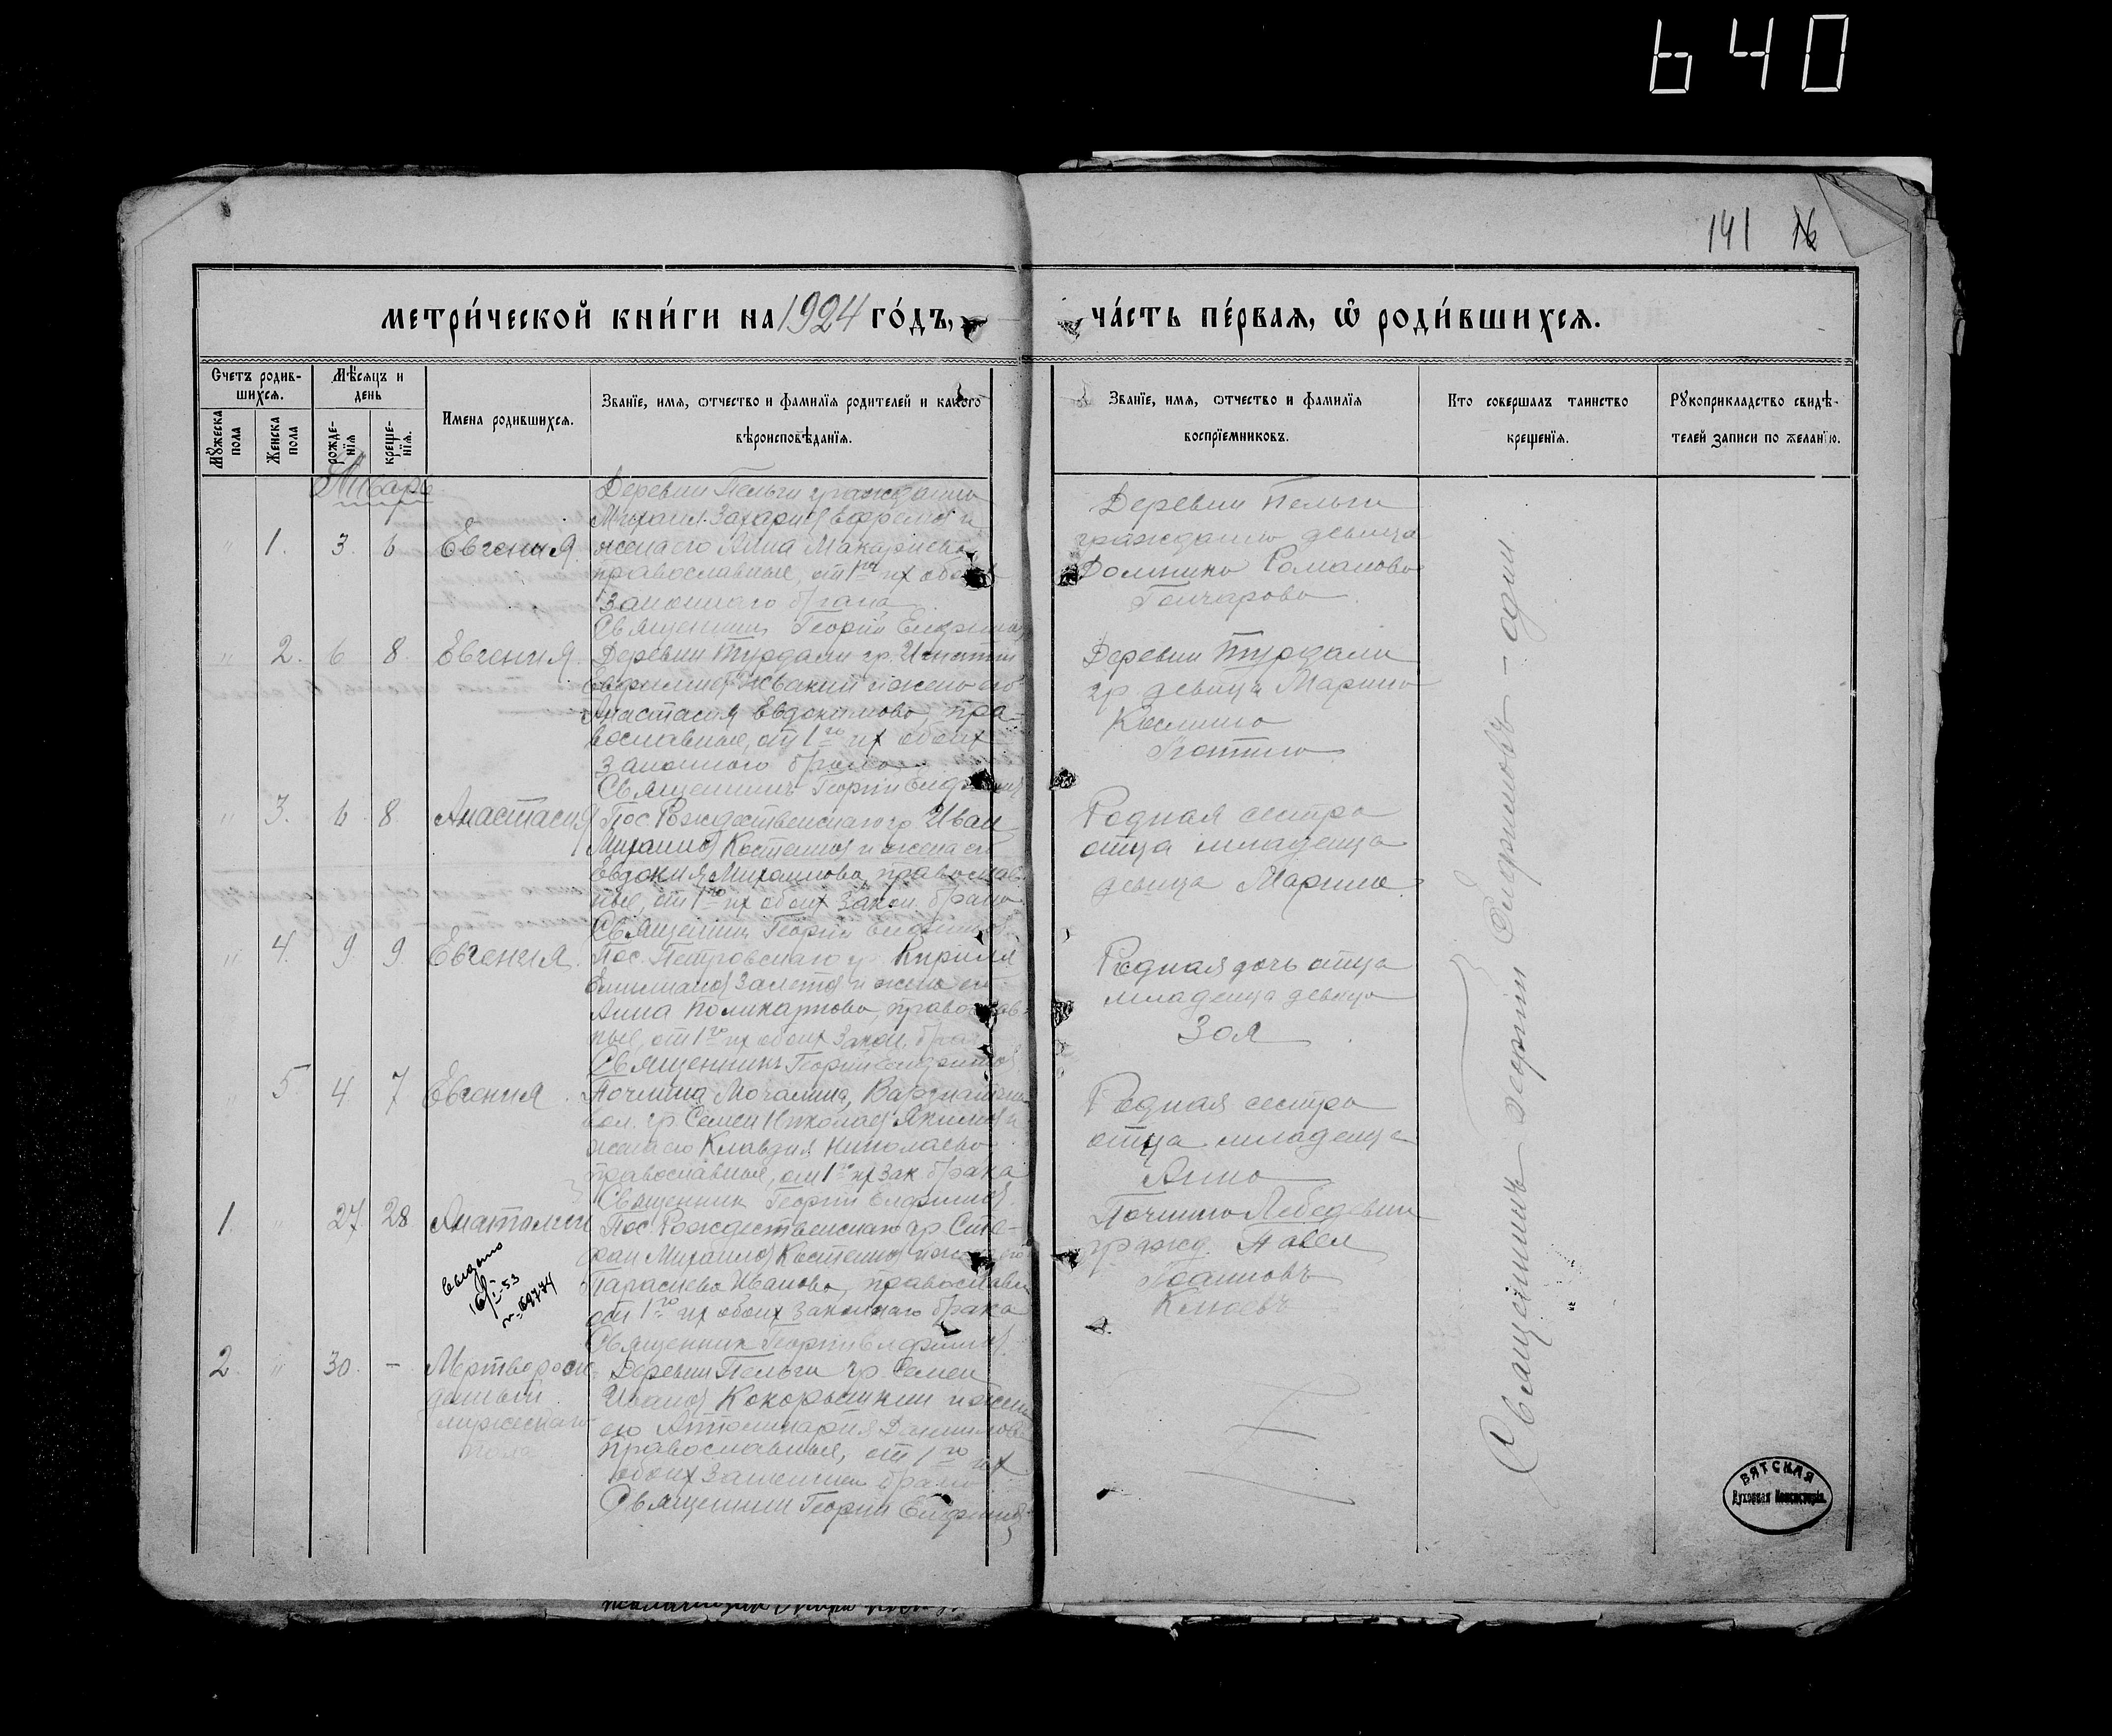 640
141 16
МЕТРИ́ЧЕСКОЙ КНИ́ГИ НА 1924 ГО́ДЪ,
ЧА́СТЬ ПЕ́РВАЯ, Ѡ РОДИ́ВШИХСЯ.
Счетъ родив-
шихся.
Мѣсяцъ и
день
Мужеска
пола
Женска
пола
рожде-
нїя
креще-
нїя.
Имена родившихся.
Званїе, имя, ѿчество и фамилїя родителей и какого
вѣроисповѣданїя.
Званїе, имя, ѿчество и фамилїя
воспрїемниковъ.
Кто совершалъ таинство
крещенїя.
Рукоприкладство свидѣ-
телей записи по желанїю.
Январь
" 1. 3. 6 Евгения
Деревни Пельги гражданин
Михаил Захаров и
жена его Анна Макариева
православные, от 1го их обоих
законного брака
Священник Георгий Елфимов
Деревни Пельги
гражданка девица
Домника Романова
Гончарова
" 2. 6 8. Евгения.
Деревни Турдали гр. Игнатий
и жена его
Анастасия Евдокимова, пра-
вославные, от 1го их обоих
законного брака
Священник Георгий Елфимов
Деревни Турдали
гр. девица Марина
" 3. 6 8. Анастасия
Пос. Рождественского гр. Иван
Михаилов Костенков и жена его
Евдокия Михаилова, православ-
ные, от 1го их обоих закон. брака
Священник Георгий Елфимов
Родная сестра
отца младенца
девица Марина
" 4. 9. 9. Евгения.
Пос. Петровского гр. Кирилл
и жена его
Анна Поликарпова, православ-
ные, от 1го их обоих закон. брака
Священникъ Георгий Елфимов
Родная дочь отца
младенца девица
Зоя
" 5 4 7 Евгения.
Починка Мочалина,
вол. гр. Семен Николаев Якимов и
жена его Клавдия Николаева
православные, от 1го их зак брака
Священник Георгий Елфимов
Родная сестра
отца младенца
Анна
1. " 27. 28 Анатолий
Выдано
16/I-53
Пос. Рождественского гр. Сте-
фан Михаилов Костенков и жена его
Параскева Иванова, православны
от 1го их обоих законного брака
Священник Георгий Елфимов
Починка Лебедевки
гражд. Павел
Иоанновъ
Клюевъ
2. " 30. - Мертворож-
денный
мужеского
пола
Деревни Пельги гр. Семен
Иванов и жена
его Аполлинария Данилова
православные, от 1го их
обоих законного брака
Священник Георгий Елфимов
Священникъ Георгий Елфимовъ - один.
ВЯТСКАЯ
Духовная Консисторія.